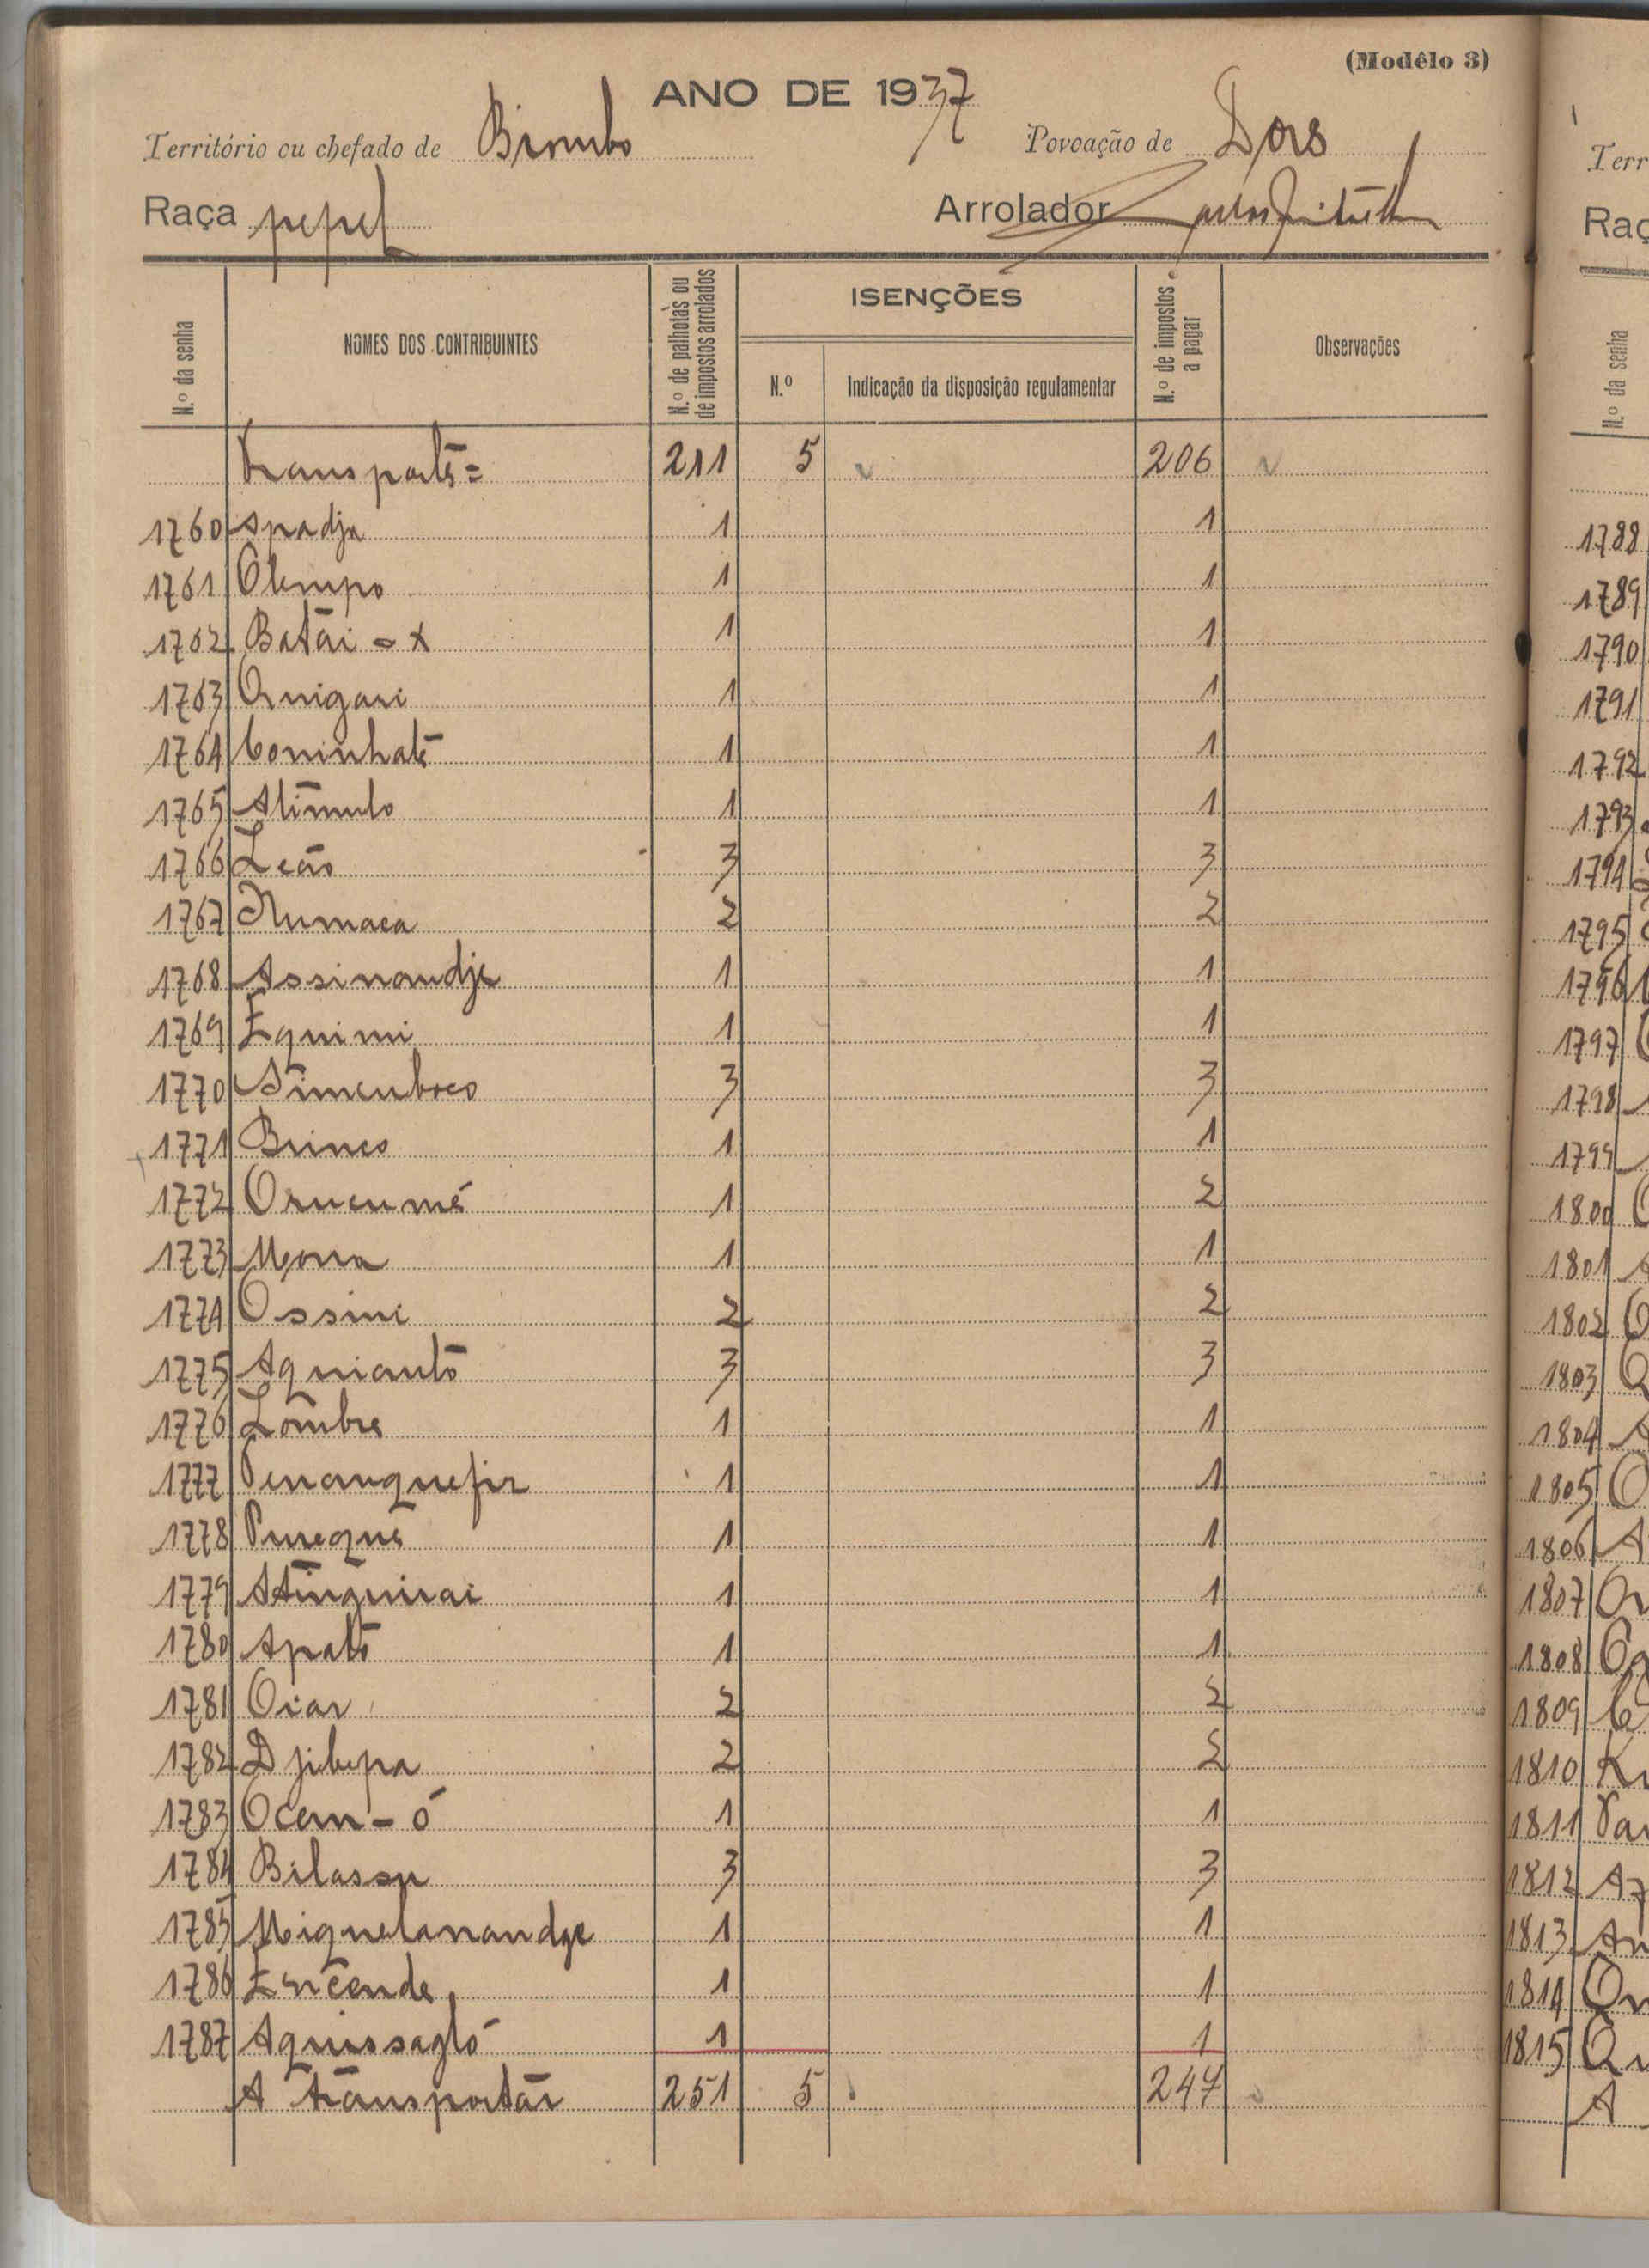 (Modêlo 3)
ANO DE 1937
Território ou chefado de Biombo Povoação de Dors
Raça pepel Arrolador
N.º da senha
NOMES DOS CONTRIBUINTES
N.º de palhotas ou de impostos arrolados
ISENÇÕES
N.º
Indicação da disposição regulamentar
N.º de impostos a pagar
Observações
Transporte= 211 5 206
1760 Spadja 1 1
1761 Olempo 1 1
1762 Batai = x 1 1
1763 Quigari 1 1
1764 Coninhate 1 1
1765 Alimulo 1 1
1766 Leão 3 3
1767 Numaca 2 2
1768 Assinandje 1 1
1769 Equimi 1 1
1770 Simcubres 3 3
1771 Brinco 1 1
1772 Orucumé 1 2
1773 Mona 1 1
1774 Ossine 2 2
1775 Aquianto 3 3
1776 Lombre 1 1
1777 Penanquefir 1 1
1778 Pureque 1 1
1779 Atinquirai 1 1
1780 Apalo 1 1
1781 Oiar 2 2
1782 Djibepa 2 2
1783 Ocan - ó 1 1
1784 Bilassu 3 3
1785 Miquelanandge 1 1
1786 Encende 1 1
1787 Aquissagló 1 1
A transportar 251 5 247
Terr
Raç
N.º da senha
1788
1789
1790
1791
1792
1793
1794
1795
1796
1797
1798
1799
1800
1801
1802
1803
1804
1805
1806 A
1807
1808
1809
1810
1811
1812
1813
1814
1815
A